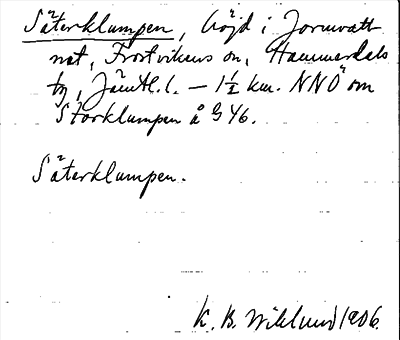 Säterklumpen, höjd i Jormvatt
net, Frostvikens sn, Hammerdals
tg, Jämtl. l. — 1½ km. NNÖ om
Storklumpen å G 46.
Säterklumpen.
K. B. Wiklund 1906.